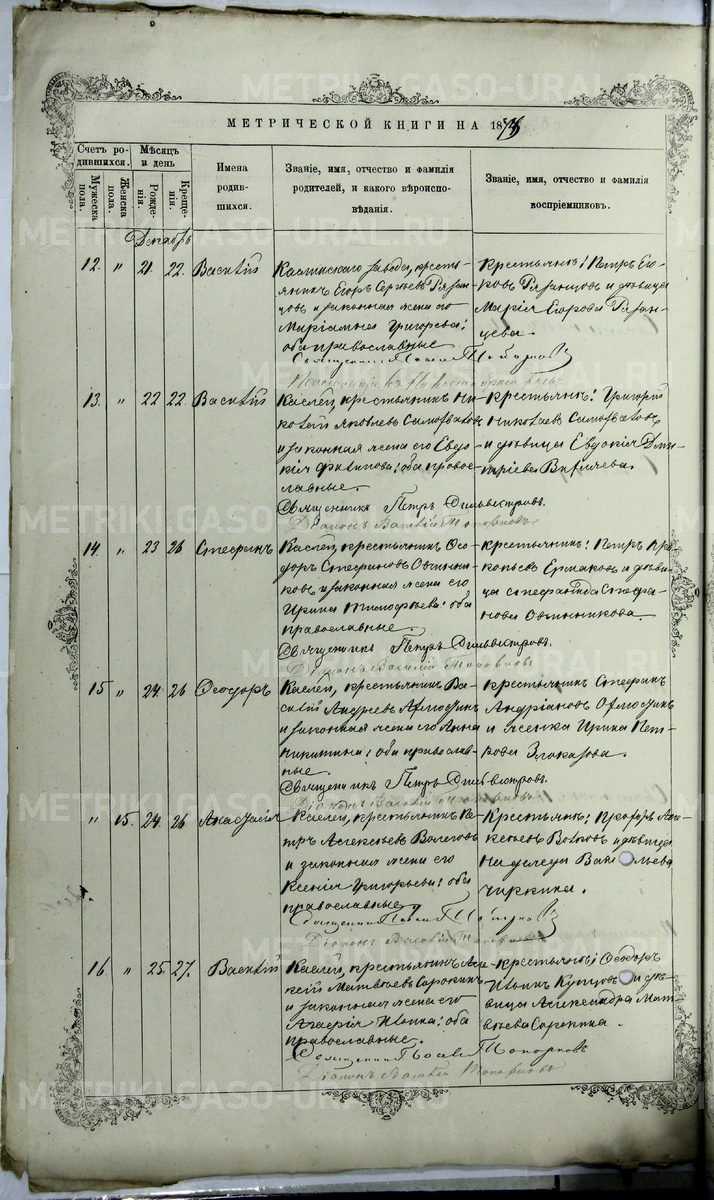 МЕТРИЧЕСКОЙ КНИГИ НА 1878
Счетъ ро-
дившихся.
Мѣсяцъ
и день
Имена
родив-
шихся.
Званіе, имя, отчество и фамилія
родителей, и какого вѣроиспо-
вѣданія.
Званіе, имя, отчество и фамилія
воспріемниковъ.
Мужеска
пола.
Женска
пола.
Рожде-
нія.
Креще-
нія.
Декабрь
12. " 21. 22. Василій
Каслинскаго завода, кресть-
янинъ Егоръ Сергѣевъ Рязан-
цовъ и законная жена его
Маріамна Григорьева;
оба православные
Священникъ
Крестьянинъ: Петръ Его-
ровъ Рязанцовъ и дѣвица
Марія Егорова Рязан-
цева.
13. " 22 22. Василій
Каслей, крестьянинъ Ни-
колай Яковлевъ Самохватовъ
и законная жена его Евдо-
кія Филипова; оба право-
славные.
Священникъ Петръ Сильвестровъ.
Діаконъ Василій Топорковъ
крестьянинъ: Григорій
Николаевъ Самохватовъ
и дѣвица Евдокія Дми-
тріева
14. " 23 26 Стефанъ
Каслей, крестьянинъ Ѳео-
доръ Стефановъ Овчинни-
ковъ и законная жена его
Ирина Тимофѣева: оба
православные.
Священникъ Петръ Сильвестровъ.
Діаконъ Василій Топорковъ
крестьянинъ: Петръ Про-
копьевъ Ермаковъ и дѣви-
ца Стефанида Стефа-
нова Овчинникова.
15 " 24. 26 Ѳеодоръ
Каслей, крестьянинъ Ва-
силій Андреевъ
и законная жена его Анна
Никитина; оба православ-
ные.
Священникъ Петръ Сильвестровъ.
Діаконъ Василій Топорковъ
крестьянинъ Стефанъ
Андріановъ
и женка Ирина Пет-
рова Злоказова.
" 15. 24. 26 Анастасія
Каслей, крестьянинъ Пе-
тръ Алексѣевъ
и законная жена его
Ксенія Григорьева: оба
православные
Священникъ
Діаконъ Василій Топорковъ
Крестьянинъ: Але-
ксѣевъ и дѣвица
Надежда Васильева
Чиркина.
16. " 25. 27. Василій
Каслей, крестьянинъ Але-
ксѣй Матвѣевъ Сорокинъ
и законная жена его
Ильина: оба
православные.
Священникъ Топорковъ
Діаконъ Василій Топорковъ
крестьянинъ: Ѳеодоръ
Ильинъ Купцовъ и дѣ-
вица Александра Мат-
вѣева Сорокина.
METRIKI.GASO-URAL.RU